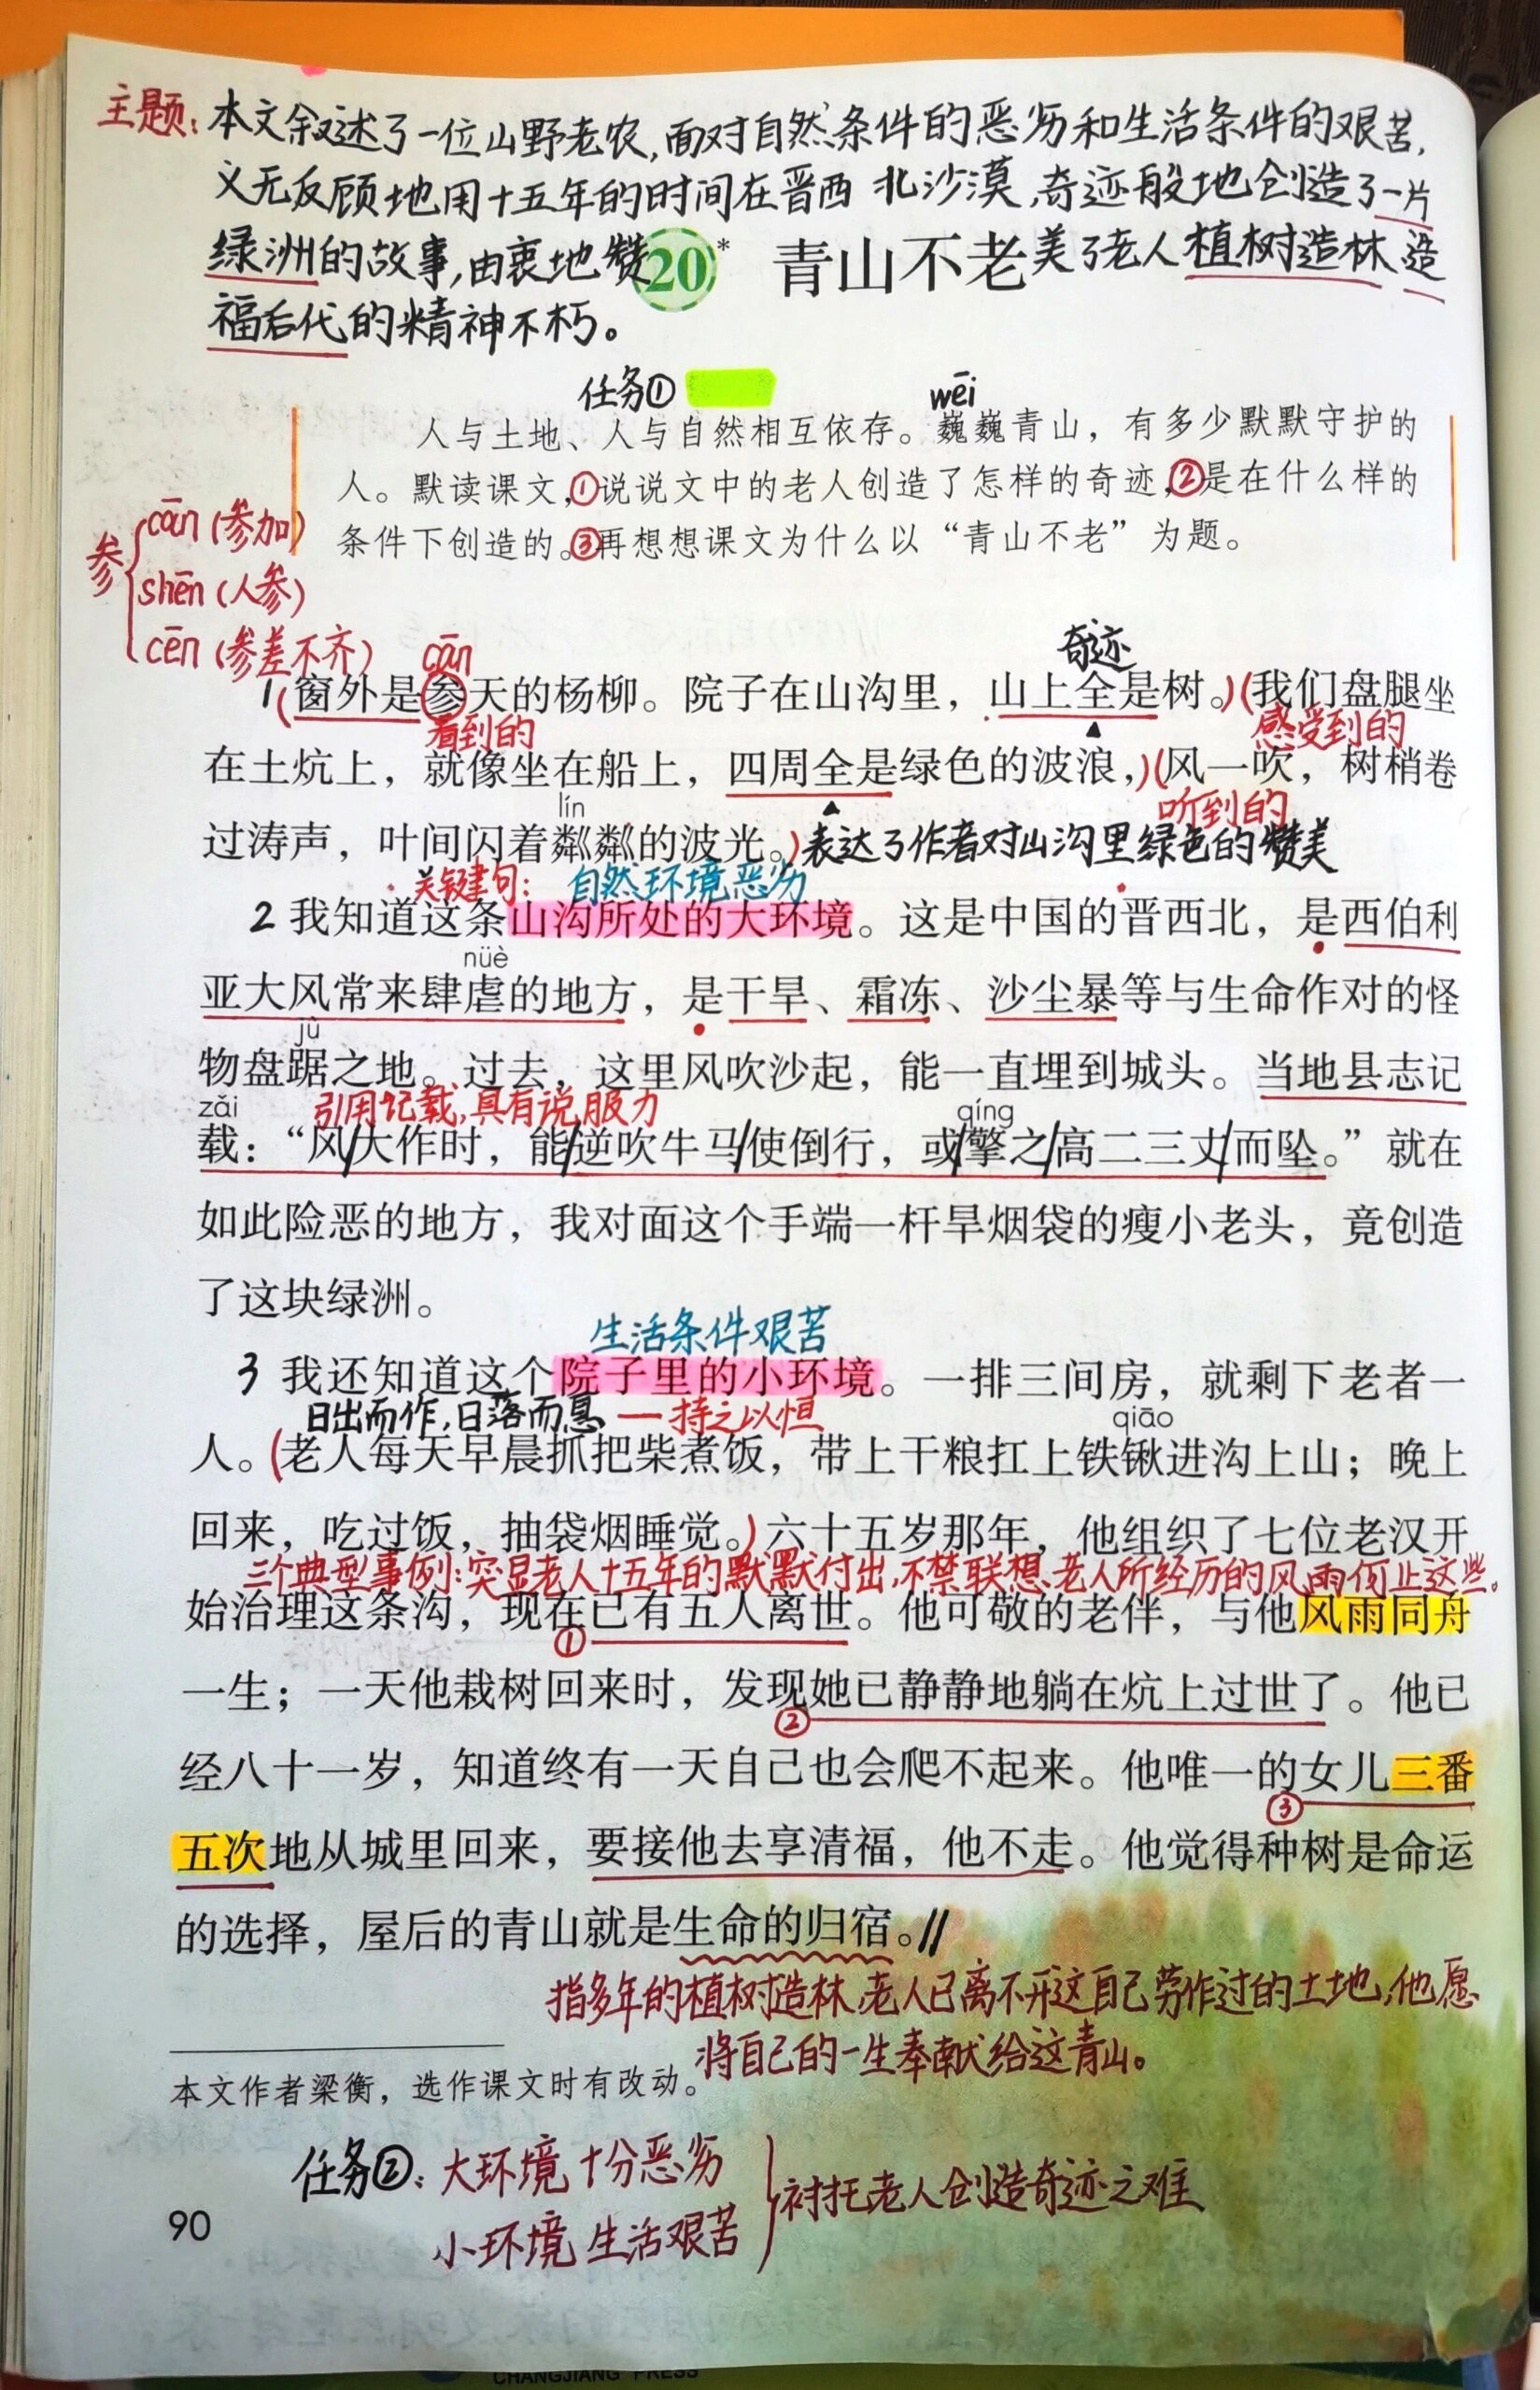 主题：本文叙述了一位山野老农，面对自然条件的恶劣和生活条件的艰苦，
义无反顾地用十五年的时间在晋西北沙漠，奇迹般地创造了一片
绿洲的故事，由衷地赞美了老人植树造林、造
福后代的精神不朽。
20* 青山不老
任务①
wēi
人与土地、人与自然相互依存。巍巍青山，有多少默默守护的
人。默读课文，①说说文中的老人创造了怎样的奇迹，②是在什么样的
条件下创造的。③再想想课文为什么以“青山不老”为题。
参
cān（参加）
shēn（人参）
cēn（参差不齐）
cān
奇迹
1（窗外是参天的杨柳。院子在山沟里，山上全是树。）（我们盘腿坐
看到的
感受到的
在土炕上，就像坐在船上，四周全是绿色的波浪，）（风一吹，树梢卷
lín
听到的
过涛声，叶间闪着粼粼的波光。）表达了作者对山沟里绿色的赞美
关键句：自然环境恶劣
2 我知道这条山沟所处的大环境。这是中国的晋西北，是西伯利
nüè
亚大风常来肆虐的地方，是干旱、霜冻、沙尘暴等与生命作对的怪
jù
物盘踞之地。过去，这里风吹沙起，能一直埋到城头。当地县志记
zǎi
引用记载，具有说服力
qíng
载：“风/大作时，能/逆吹牛马/使倒行，或/擎之/高二三丈/而坠。”就在
如此险恶的地方，我对面这个手端一杆旱烟袋的瘦小老头，竟创造
了这块绿洲。
生活条件艰苦
3 我还知道这个院子里的小环境。一排三间房，就剩下老者一
日出而作，日落而息——持之以恒
qiāo
人。（老人每天早晨抓把柴煮饭，带上干粮扛上铁锹进沟上山；晚上
回来，吃过饭，抽袋烟睡觉。）六十五岁那年，他组织了七位老汉开
三个典型事例：突显老人十五年的默默付出，不禁联想老人所经历的风雨何止这些。
始治理这条沟，现在已有五人离世。他可敬的老伴，与他风雨同舟
①
一生；一天他栽树回来时，发现她已静静地躺在炕上过世了。他已
②
经八十一岁，知道终有一天自己也会爬不起来。他唯一的女儿三番
③
五次地从城里回来，要接他去享清福，他不走。他觉得种树是命运
的选择，屋后的青山就是生命的归宿。//
指多年的植树造林，老人已离不开这自己劳作过的土地，他愿
将自己的一生奉献给这青山。
本文作者梁衡，选作课文时有改动。
任务②：大环境 十分恶劣
小环境 生活艰苦
衬托老人创造奇迹之难
90
CHANGJIANG PRESS